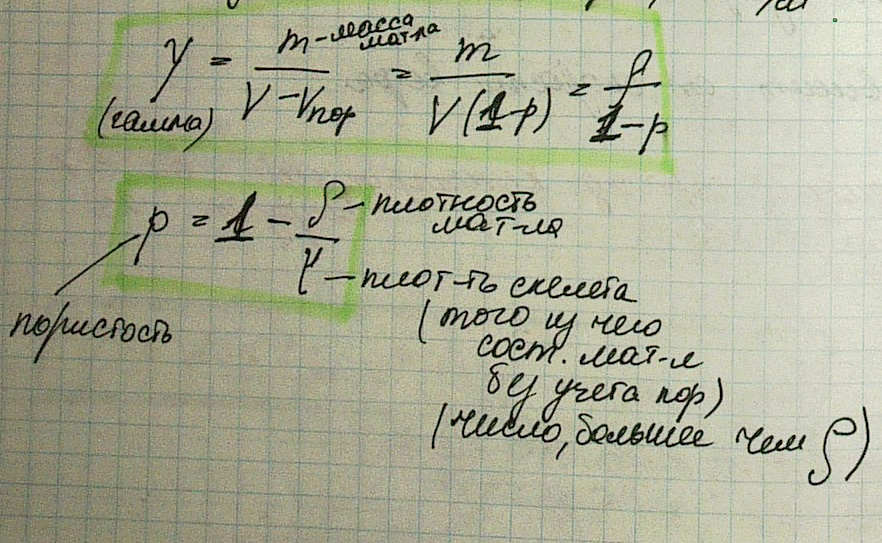 γ = m - масса мат-ла / V - Vпор = m / V(1-p) = ρ / 1-p
(гамма)
p = 1 - ρ / γ
ρ - плотность
мат-ла
γ - плот-ть скелета
(того из чего
сост. мат-л
без учета пор)
(число, большее чем ρ)
пористость